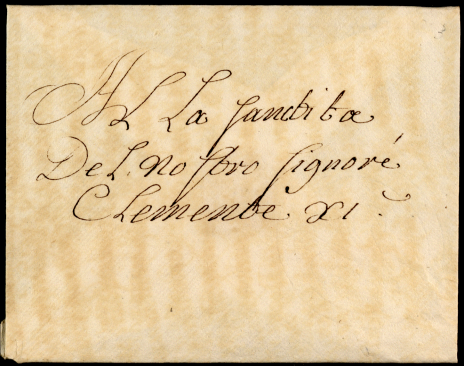 Al La Sanctita
Del. Nostro Signore
Clemente XI.